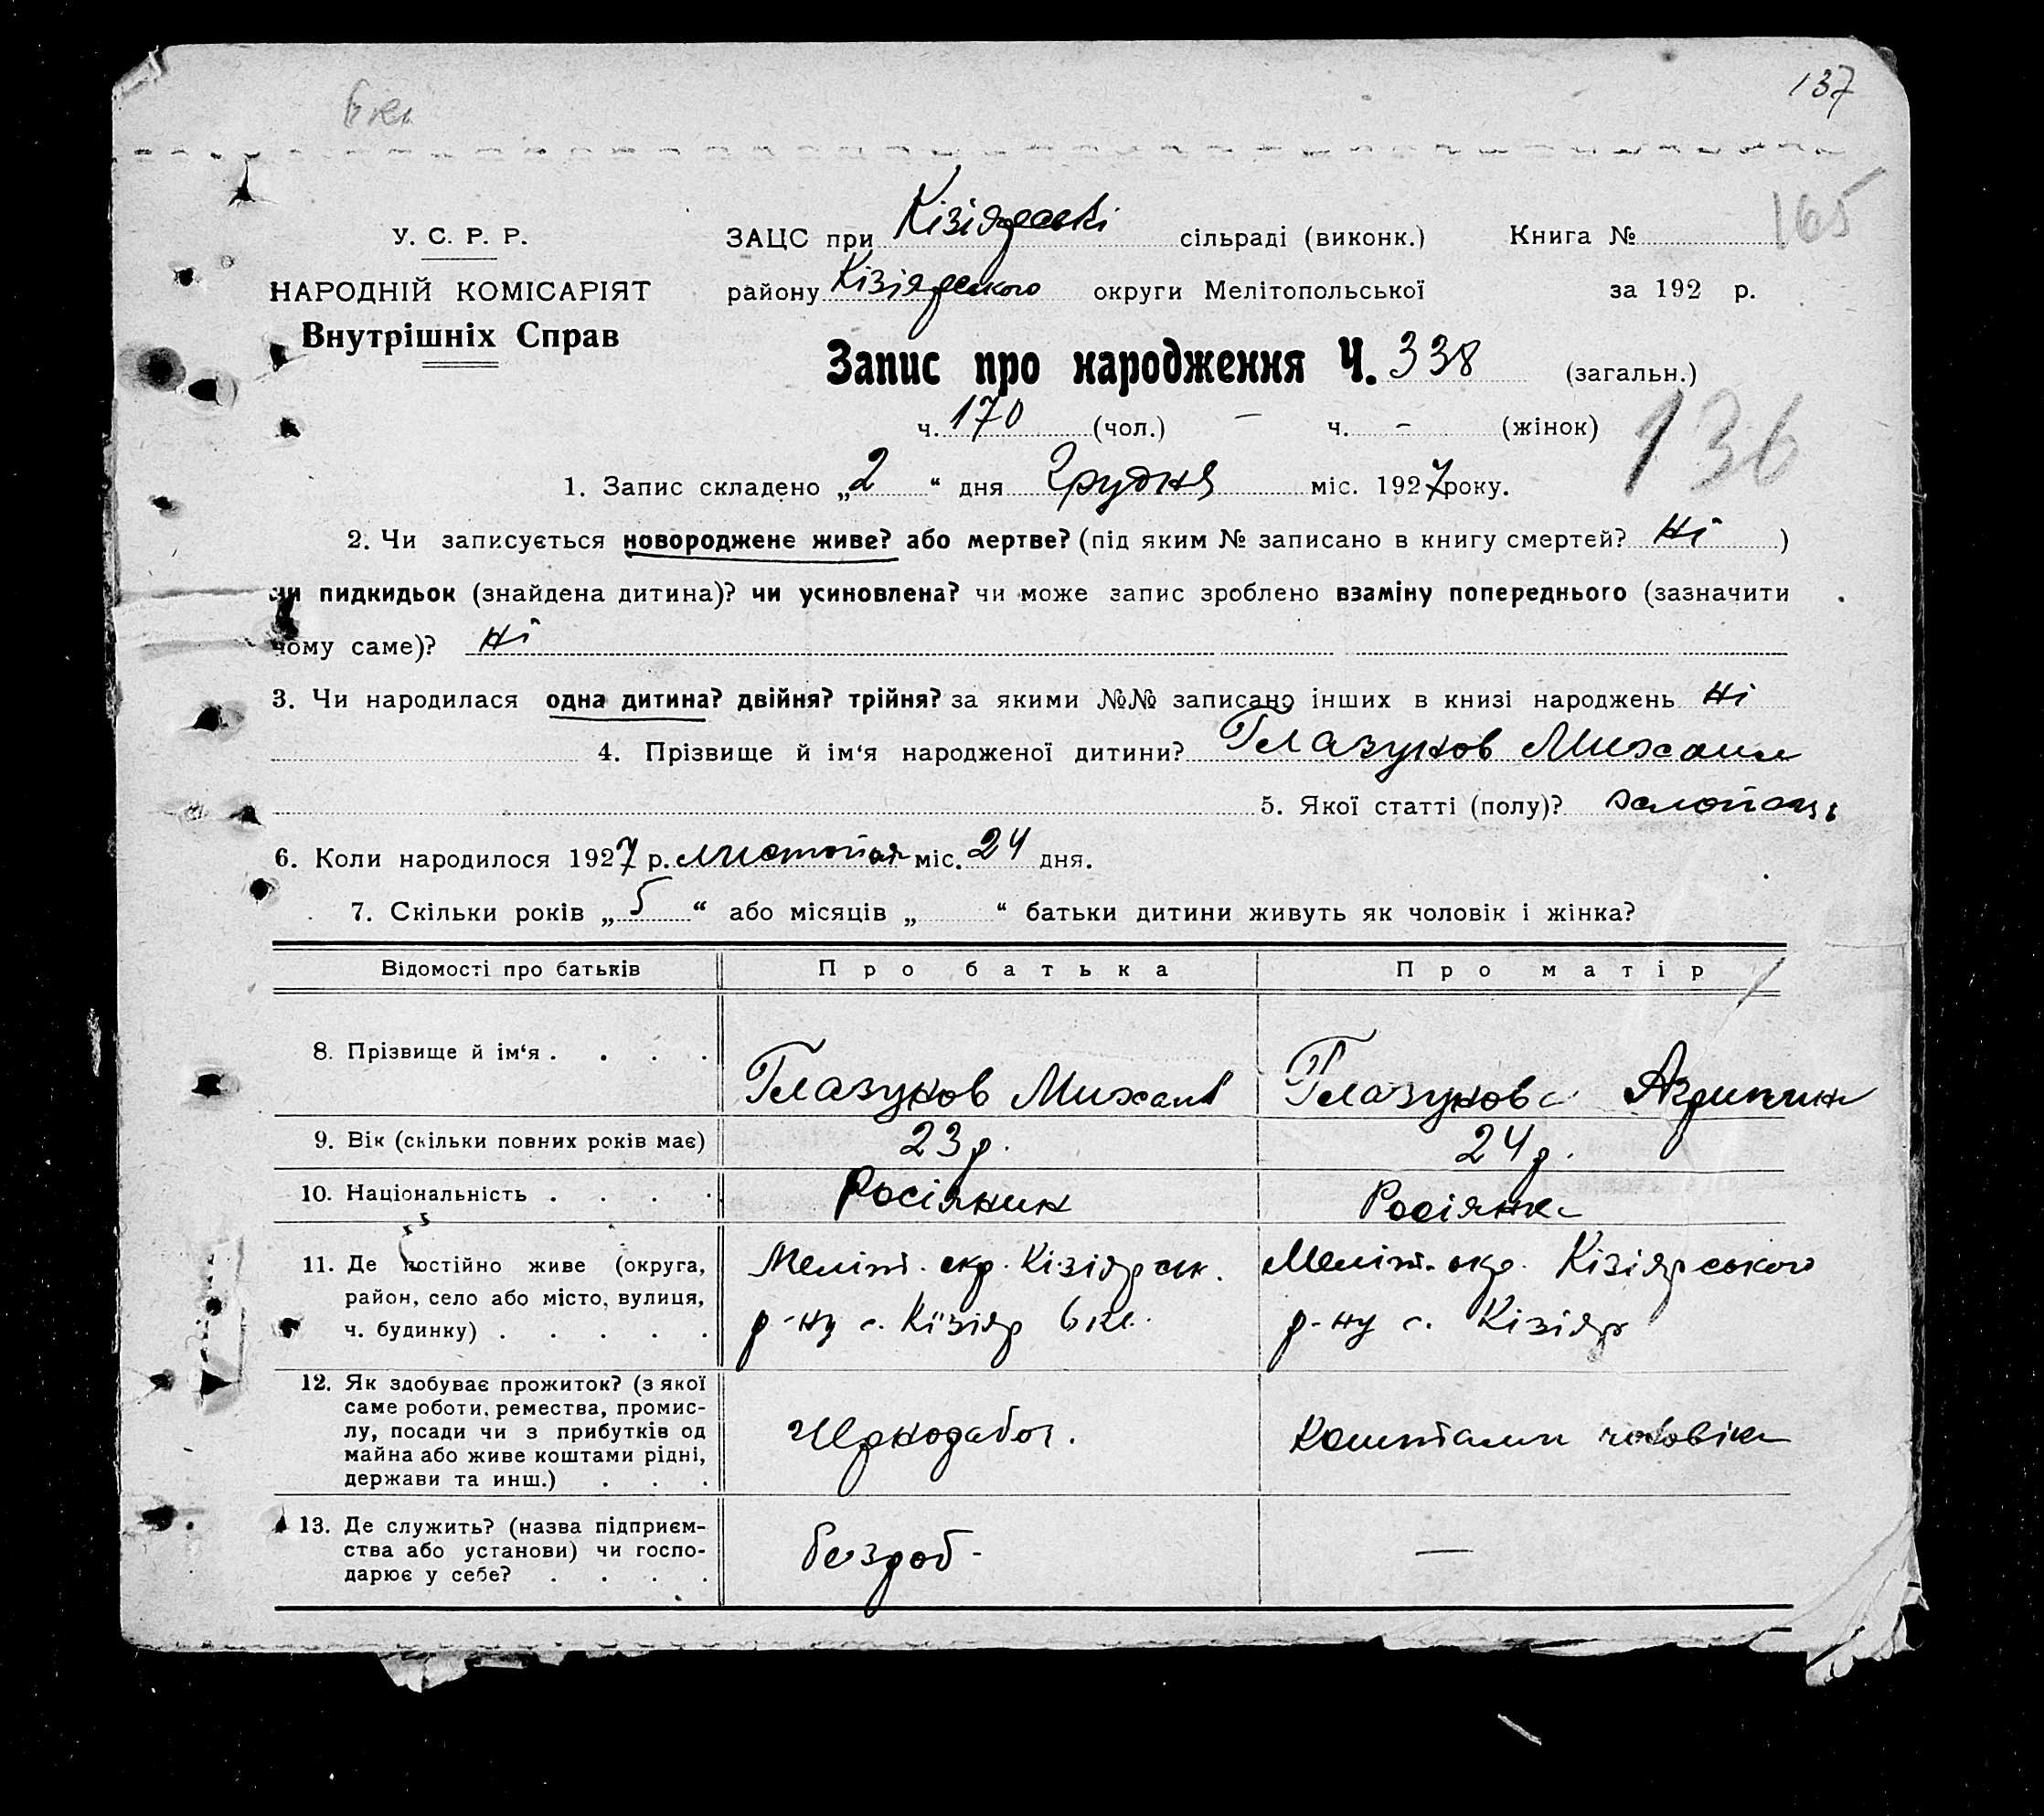 137
6 кл
165
У. С. Р. Р.
НАРОДНІЙ КОМІСАРІЯТ
Внутрішніх Справ
ЗАЦС при Кізіярські сільраді (виконк.) Книга №
району Кізіярського округи Мелітопольської за 192 р.
Запис про народження Ч. 338 (загальн.)
ч. 170 (чол.) – ч. – (жінок)
136
1. Запис складено „2“ дня Грудня міс. 1927 року.
2. Чи записується новороджене живе? або мертве? (під яким № записано в книгу смертей? Ні )
чи пидкидьок (знайдена дитина)? чи усиновлена? чи може запис зроблено взаміну попереднього (зазначити
чому саме)? Ні
3. Чи народилася одна дитина? двійня? трійня? за якими №№ записано інших в книзі народжень Ні
4. Прізвище й ім‘я народженої дитини? Глазунов Михаил
5. Якої статті (полу)? хлопець
6. Коли народилося 1927 р. листопая міс. 24 дня.
7. Скільки років „5“ або місяців „ “ батьки дитини живуть як чоловік і жінка?
Відомості про батьків Про батька Про матір
8. Прізвище й ім‘я . . . . Глазунов Михаил Глазунова Агрипин
9. Вік (скільки повних років має) 23 р. 24 р.
10. Національність . . . . Росіянин Росіянка
11. Де постійно живе (округа,
район, село або місто, вулиця,
ч. будинку) . . . . .
Меліт. окр. Кізіярськ.
р-ну с. Кізіяр 6 кл.
Меліт. окр. Кізіярського
р-ну с. Кізіяр
12. Як здобуває прожиток? (з якої
саме роботи, ремества, промис-
лу, посади чи з прибутків од
майна або живе коштами рідні,
держави та инш.) . . .
Чорнороб.
Коштами чоловіка
13. Де служить? (назва підприєм-
ства або установи) чи госпо-
дарює у себе? . . . .
безроб -
—